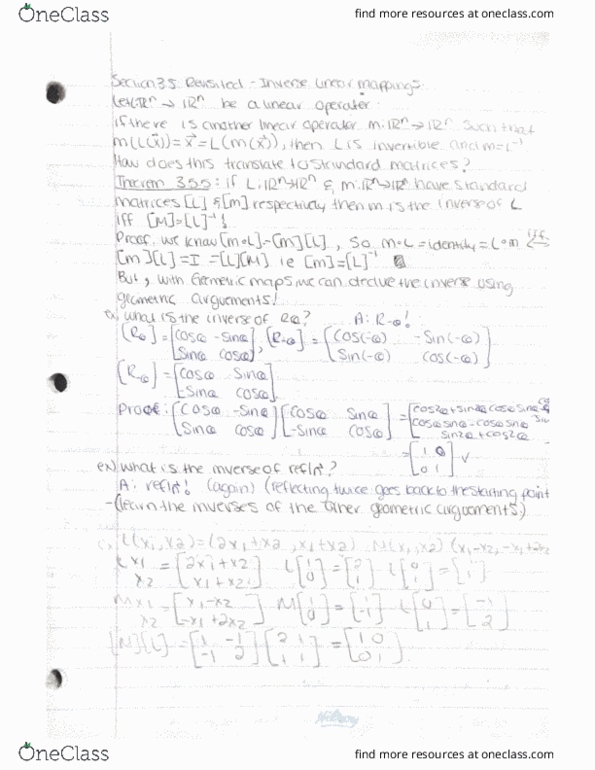 OneClass
find more resources at oneclass.com
Section 3.5 Revisited - Inverse Linear mappings
Let L:ℝⁿ → ℝⁿ be a linear operator.
if there is another linear operator m:ℝⁿ→ℝⁿ such that
m(L(x⃗))=x⃗=L(m(x⃗)), then L is invertible and m=L⁻¹
How does this translate to standard matrices?
Theorem 3.5.5: if L:ℝⁿ→ℝⁿ & m:ℝⁿ→ℝⁿ have standard
matrices [L] & [m] respectively then m is the inverse of L
iff [M]=[L]⁻¹!
Proof: we know [m∘L]=[m][L], so m∘L=identity=L∘m iff
[m][L]=I=[L][M] ie [m]=[L]⁻¹
But, with Geometric maps we can the inverse using
geometric arguements!
ex) what is the inverse of RΘ? A: R-Θ!
[RΘ]=[cosΘ -sinΘ], [R-Θ]=[cos(-Θ) -sin(-Θ)]
[sinΘ cosΘ] [sin(-Θ) cos(-Θ)]
[R-Θ]=[cosΘ sinΘ]
[-sinΘ cosΘ]
Proof: [cosΘ -sinΘ][cosΘ sinΘ]=[cos2Θ+sin2Θ cosΘsinΘ-
[sinΘ cosΘ][-sinΘ cosΘ] cosΘsinΘ-cosΘsinΘ
sin2Θ+cos2Θ]
=[1 0]
[0 1] ✓
ex) what is the inverse of refln⃗?
A: refln⃗! (again) (reflecting twice goes back to the starting point
-(learn the inverses of the other geometric arguements)
L(x1,x2)=(2x1+x2, x1+x2) M(x1,x2) (x1-x2,-x1+2x2
L x1 =[2x1+x2] L[1]=[2] L[0]=[1]
x2 [x1+x2] [0] [1] [1] [1]
M x1 =[x1-x2] M[1]=[1] [0]=[-1]
x2 [-x1+2x2] [0] [-1] [1] [2]
[M][L]=[1 -1][2 1]=[1 0]
[-1 2][1 1] [0 1]
Hilroy
OneClass
find more resources at oneclass.com